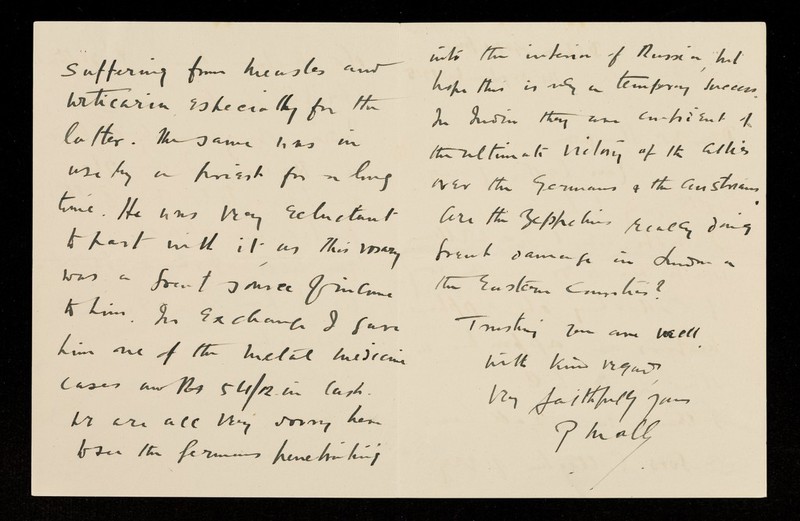 Suffering from measles and
Urticaria especially for the
latter. The same was in
use by a priest for a long
time. He was very reluctant
to part with it as this rosary
was a great source of income
to him. In Exchange I gave
him one of the metal medicine
cases and Rs in Cash.
We are all very sorry here
to see the Germans penetrating
into the interior of Russia, but
hope this is only a temporary success.
In India they are confident of
the ultimate Victory of the Allies
over the Germans & the Austrians.
Are the Zeppelins really doing
great damage in London or
the Eastern Counties?
Trusting you are well.
with kind regards
Very faithfully yours
P Mally